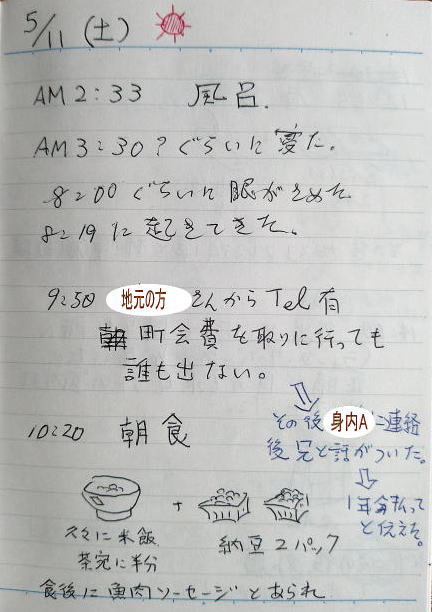 5/11 (土)
AM 2:33 風呂.
AM 3:30? ぐらいに寝た。
8:00 ぐらいに眼がさめた
8:19 に起きてきた。
9:50 地元の方 さんからTel有
町会費を取りに行っても
誰も出ない。
その後 身内A に連絡
後兄と話がついた。
1年分払って
と伝えた。
10:20 朝食
+
久々に米飯
茶碗に半分
納豆2パック
食後に魚肉ソーセージとあられ